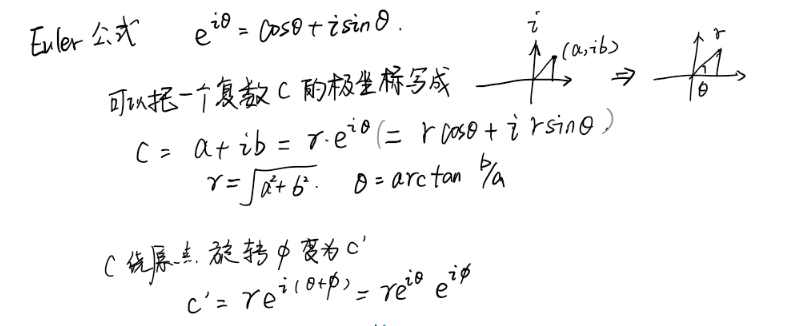 Euler 公式 e^{iθ} = cosθ + i sinθ.
i
(a, ib)
⇒
r
θ
可以把一个复数 C 的极坐标写成
C = a + ib = r·e^{iθ} (= r cosθ + i r sinθ)
r = √(a² + b²). θ = arctan b/a
C 绕原点旋转 φ 变为 C'
C' = re^{i(θ+φ)} = re^{iθ} e^{iφ}